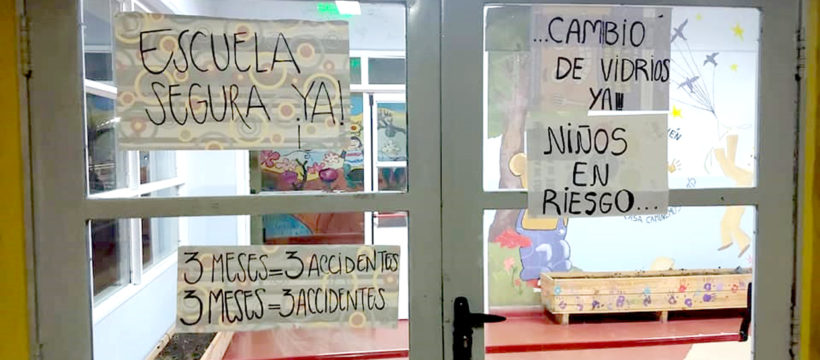 ESCUELA
SEGURA ¡YA!
3 MESES=3 ACCIDENTES
3 MESES=3 ACCIDENTES
...CAMBIO
DE VIDRIOS
YA!!!
NIÑOS
EN
RIESGO...